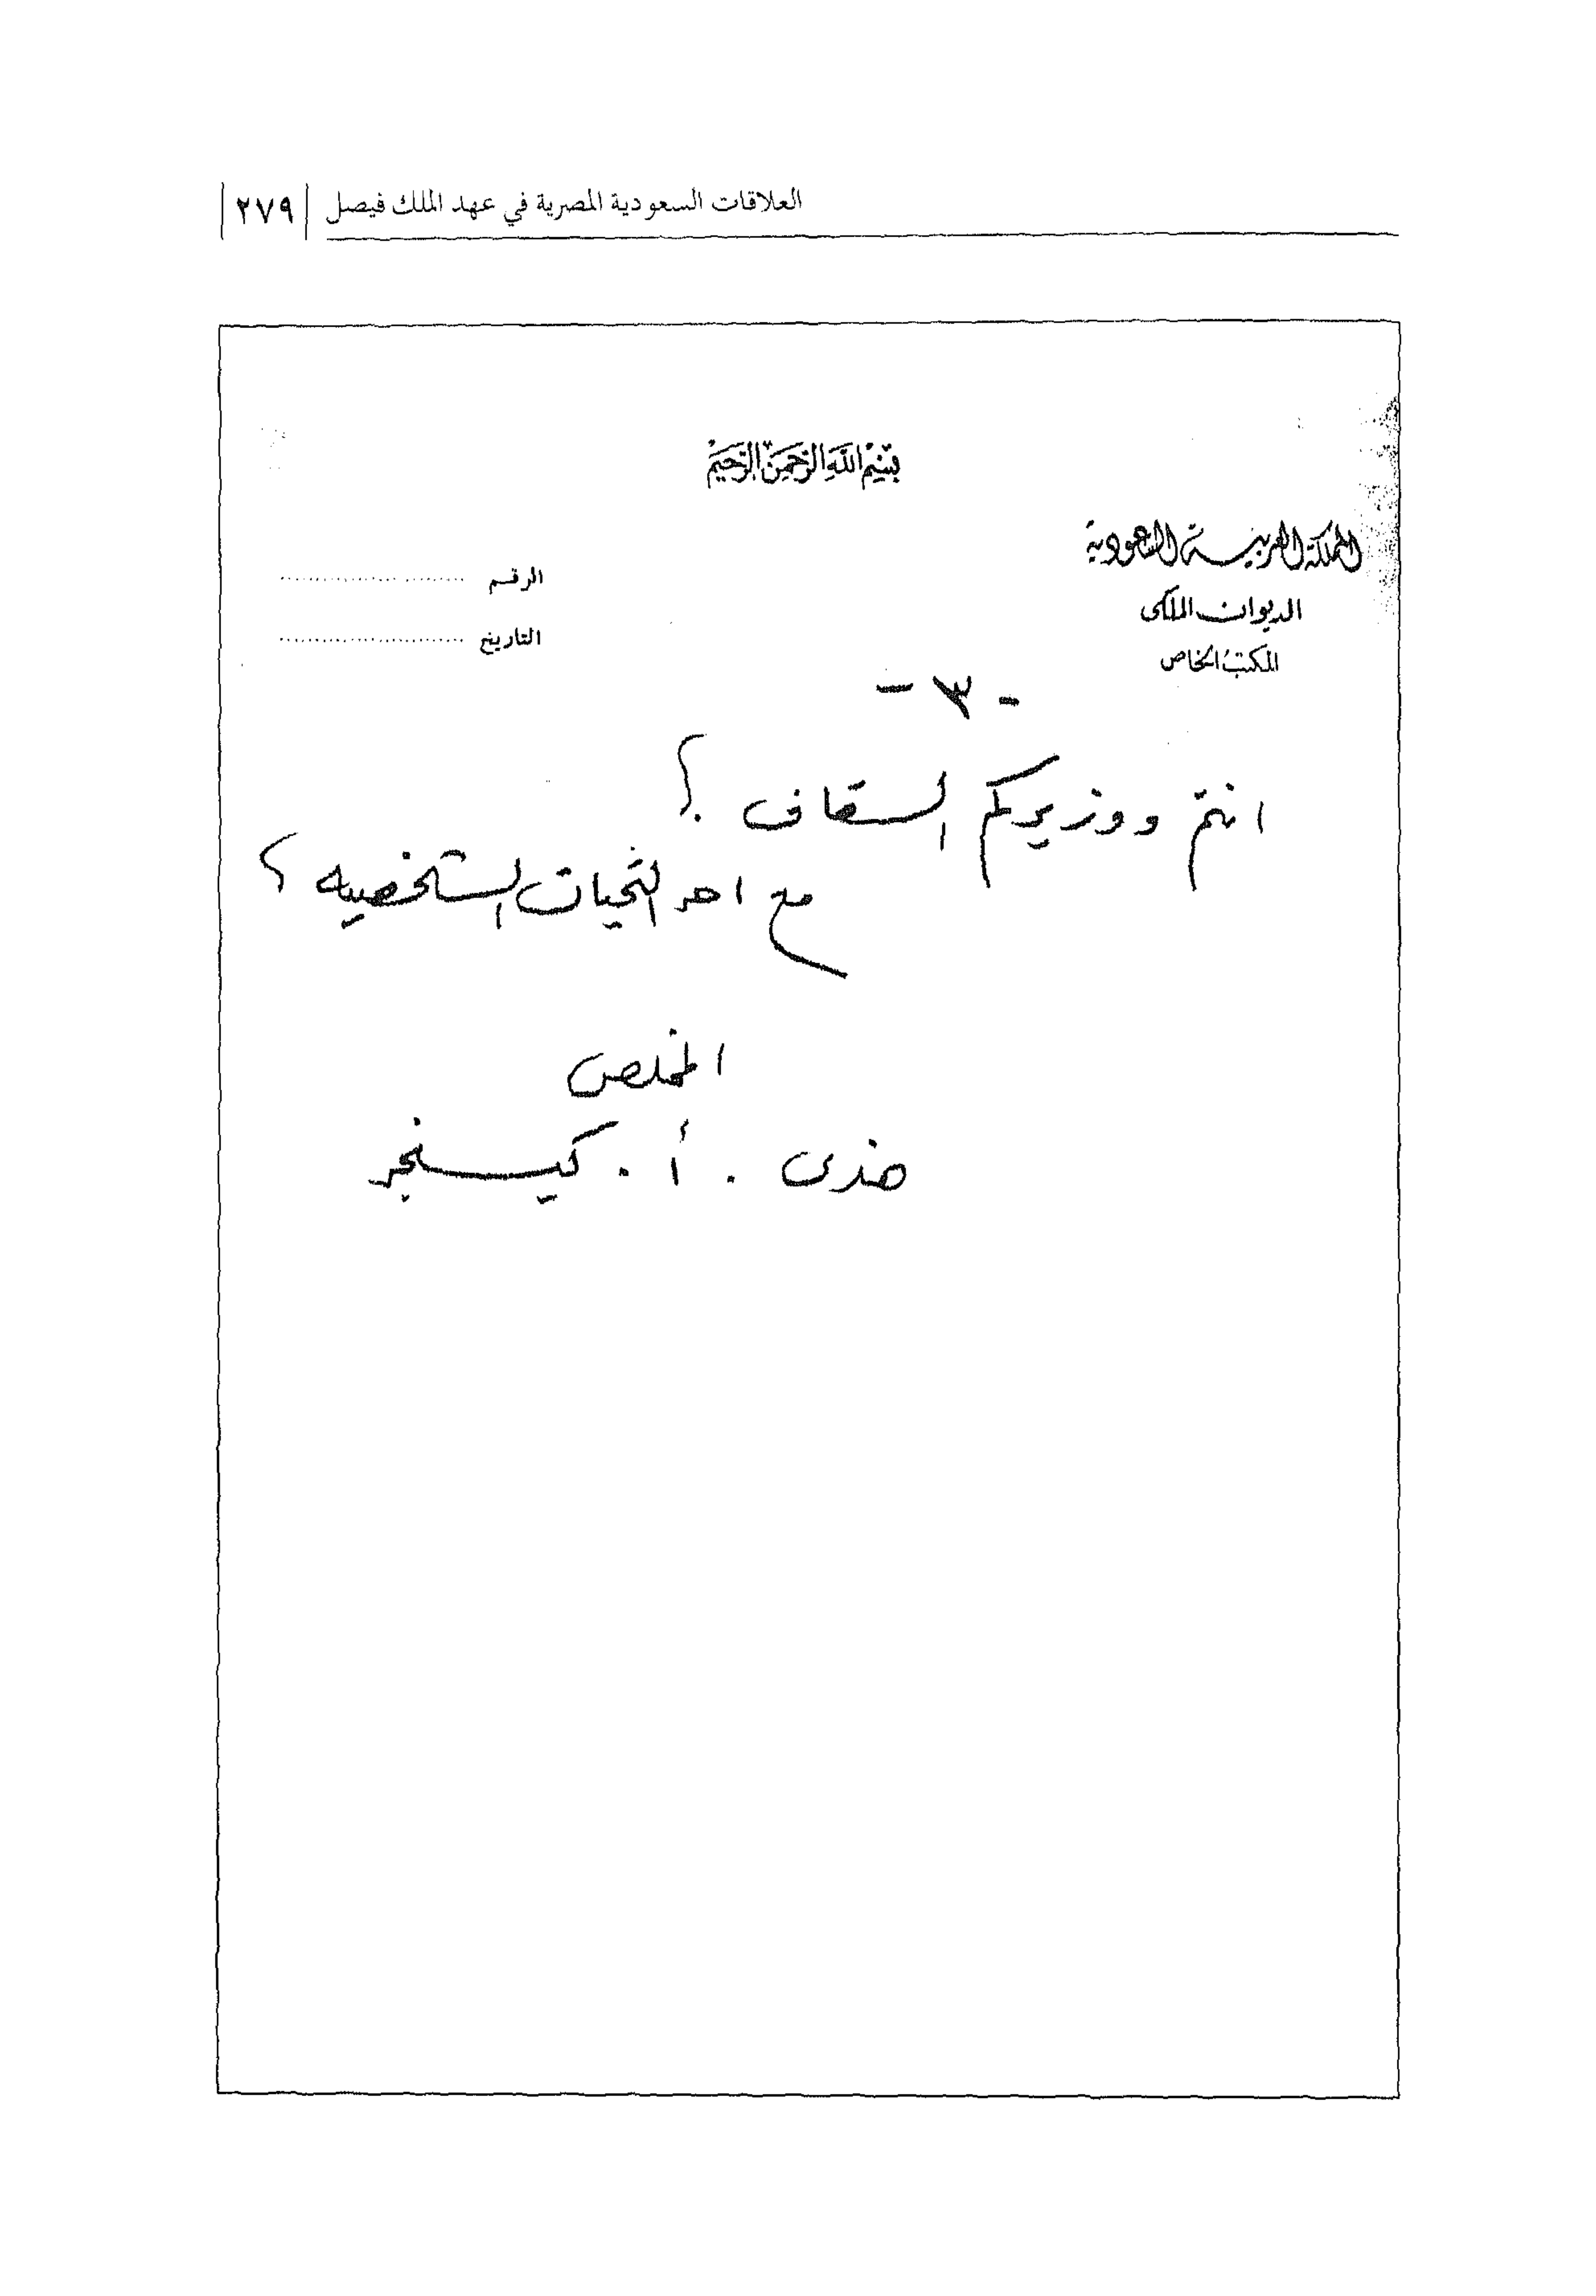 العلاقات السعودية المصرية في عهد الملك فيصل | ٢٧٩ |
بسم الله الرحمن الرحيم
المملكة العربية السعودية
الديوان الملكي
المكتب الخاص
الرقم
التاريخ
- ٣ -
انتم ووزيركم السقاف ؟
مع احر التحيات الشخصيه ؟
المخلص
هنري . أ . كيسنجر